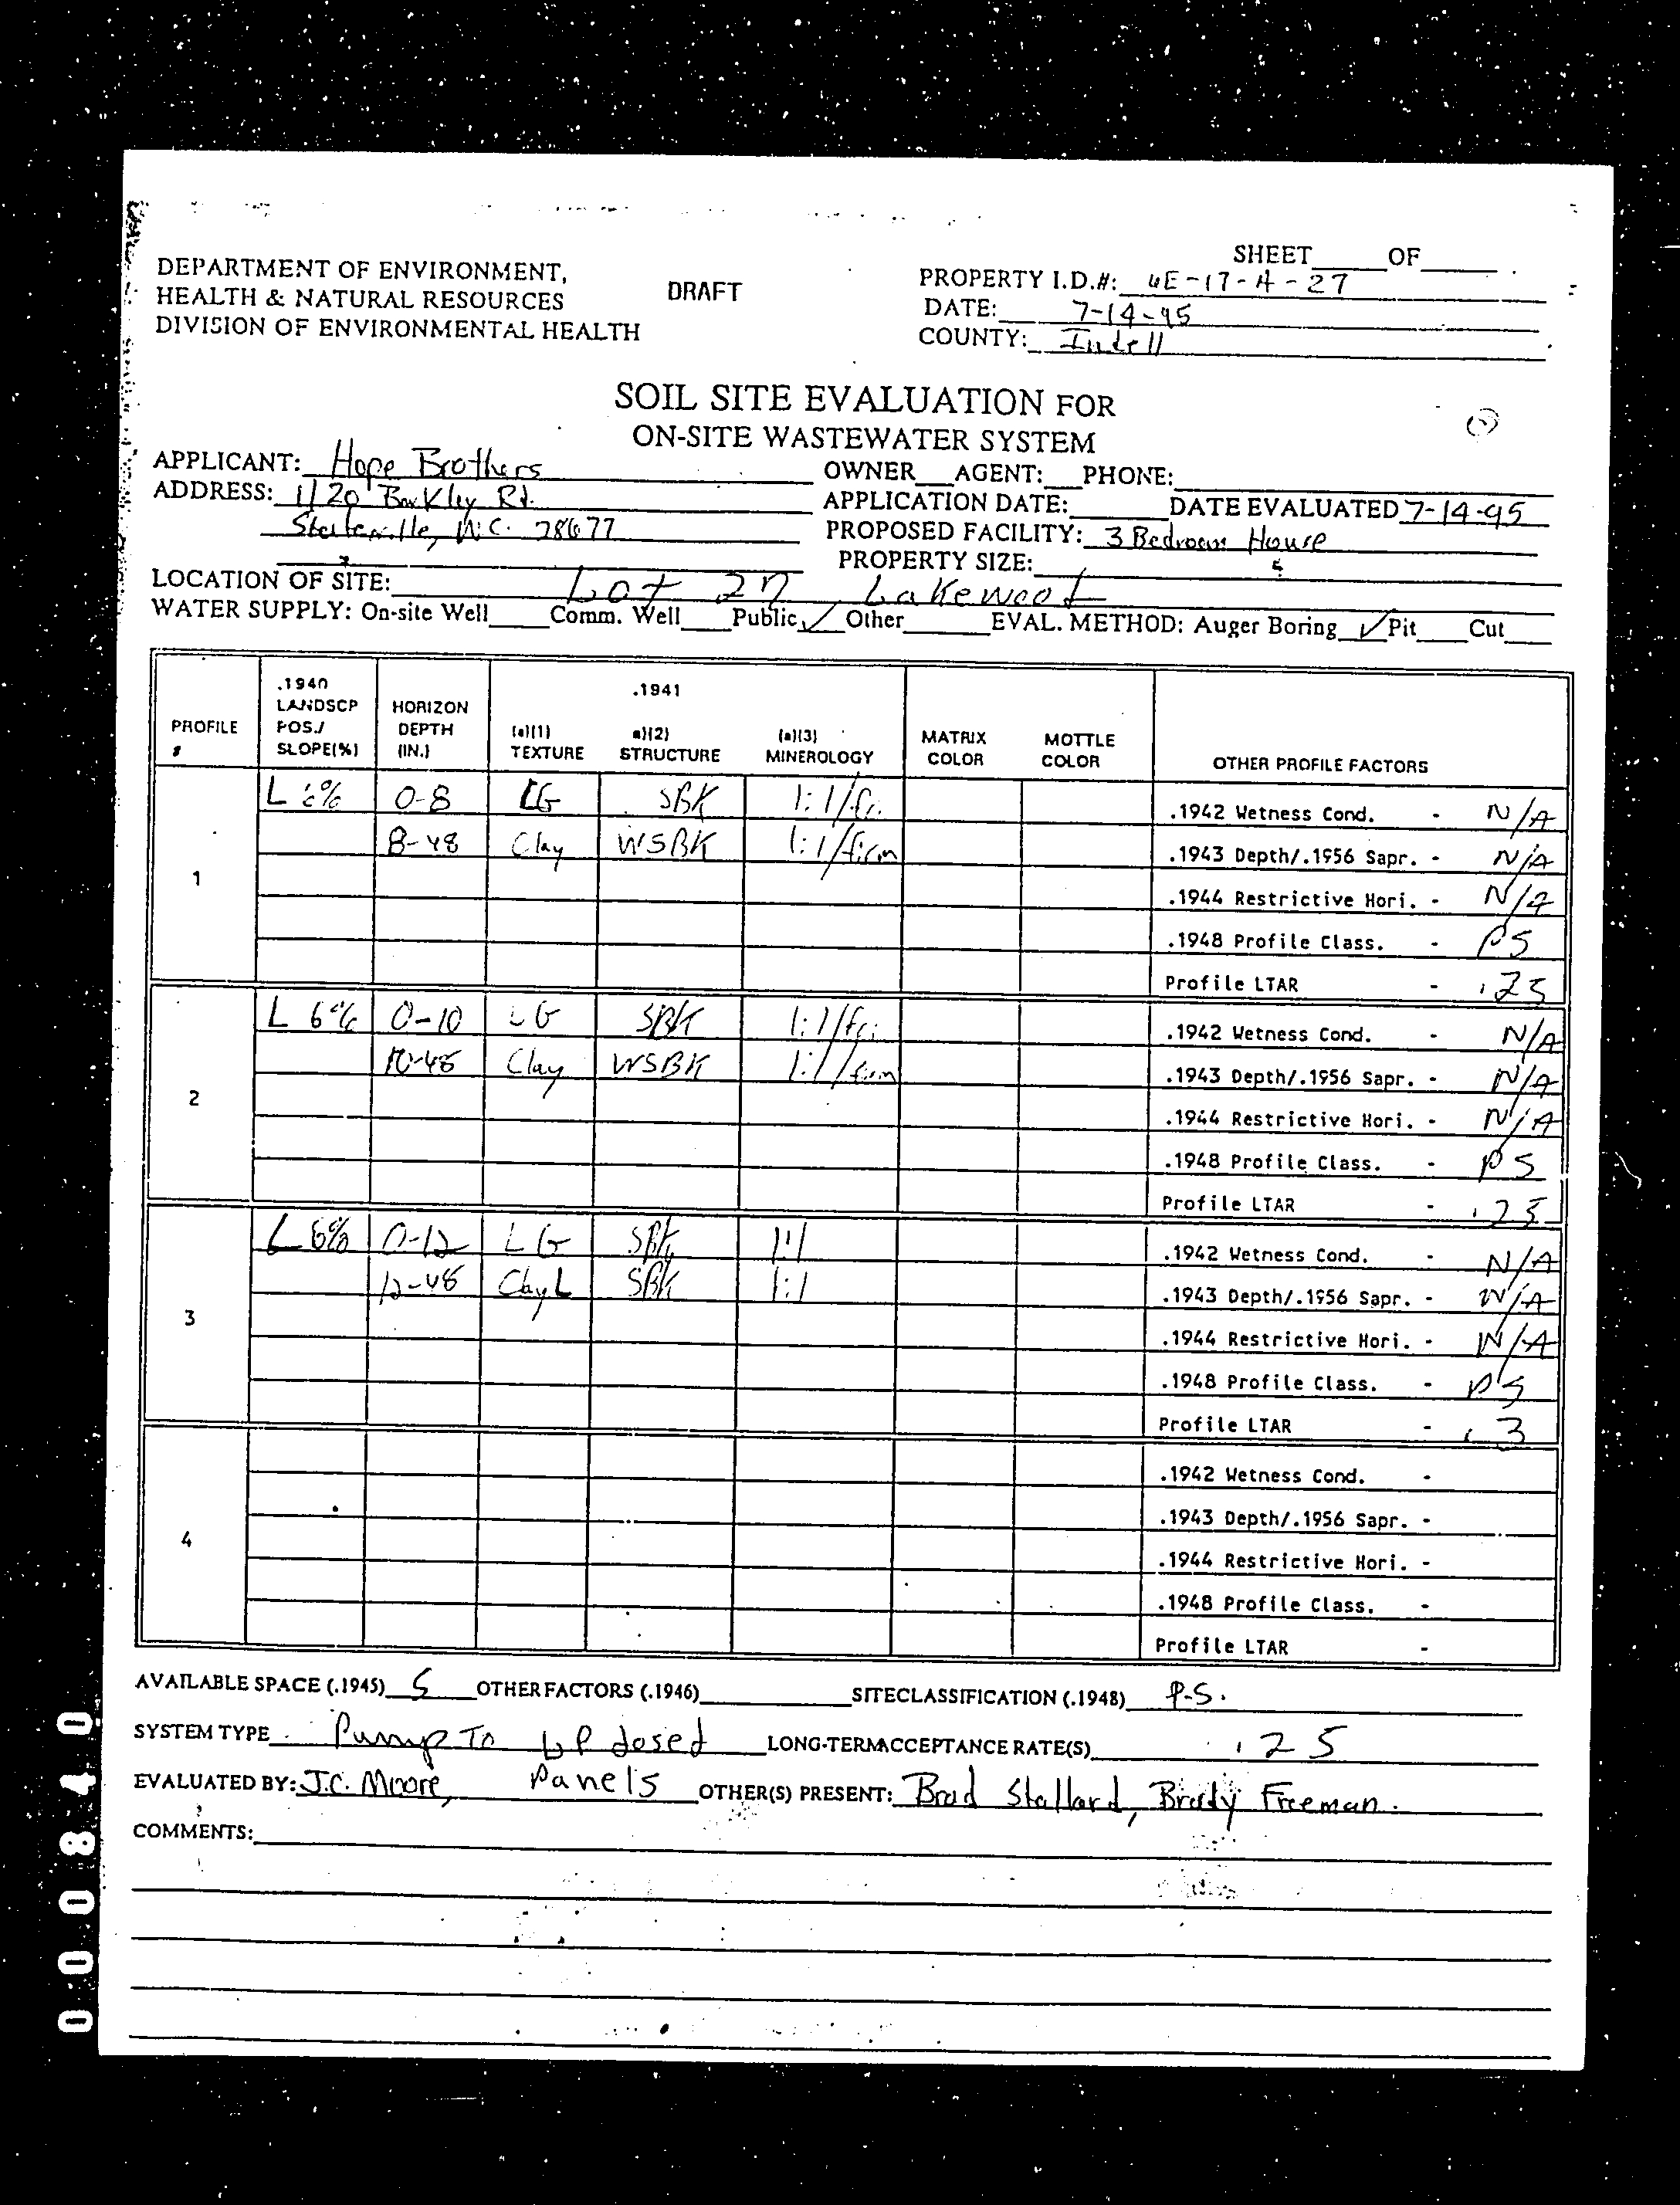 SHEET____OF____
DEPARTMENT OF ENVIRONMENT,
HEALTH & NATURAL RESOURCES
DIVISION OF ENVIRONMENTAL HEALTH
DRAFT
PROPERTY I.D.#: 4E-17-A-27
DATE: 7-14-95
COUNTY: Iredell
SOIL SITE EVALUATION FOR
ON-SITE WASTEWATER SYSTEM
APPLICANT: Hope Brothers OWNER__AGENT:__PHONE:
ADDRESS: 1120 Barkley Rd. APPLICATION DATE:____DATE EVALUATED 7-14-95
Statesville, N.C. 28677 PROPOSED FACILITY: 3 Bedroom House
PROPERTY SIZE:
LOCATION OF SITE: Lot 27 Lakewood
WATER SUPPLY: On-site Well____Comm. Well____Public ✓ Other____EVAL. METHOD: Auger Boring ✓ Pit____Cut____
PROFILE # .1940 LANDSCP POS./ SLOPE(%) HORIZON DEPTH (IN.) .1941 (a)(1) TEXTURE a)(2) STRUCTURE (a)(3) MINEROLOGY MATRIX COLOR MOTTLE COLOR OTHER PROFILE FACTORS
1 L 6% 0-8 LG SBK 1:1/fri .1942 Wetness Cond. - N/A
8-48 Clay WSBK 1:1/firm .1943 Depth/.1956 Sapr. - N/A
.1944 Restrictive Hori. - N/A
.1948 Profile Class. - PS
Profile LTAR - .25
2 L 6% 0-10 LG SBK 1:1/fri .1942 Wetness Cond. - N/A
10-48 Clay WSBK 1:1/firm .1943 Depth/.1956 Sapr. - N/A
.1944 Restrictive Hori. - N/A
.1948 Profile Class. - PS
Profile LTAR - .25
3 L 6% 0-12 LG SBK 1:1 .1942 Wetness Cond. - N/A
12-48 Clay L SBK 1:1 .1943 Depth/.1956 Sapr. - N/A
.1944 Restrictive Hori. - N/A
.1948 Profile Class. - PS
Profile LTAR - .3
4 .1942 Wetness Cond. -
.1943 Depth/.1956 Sapr. -
.1944 Restrictive Hori. -
.1948 Profile Class. -
Profile LTAR -
AVAILABLE SPACE (.1945) S OTHER FACTORS (.1946)____SITE CLASSIFICATION (.1948) P.S.
SYSTEM TYPE Pump To LP dosed LONG-TERM ACCEPTANCE RATE(S) .25
EVALUATED BY: J.C. Moore, Panels OTHER(S) PRESENT: Brad Stallard, Brady Freeman.
COMMENTS:
000840